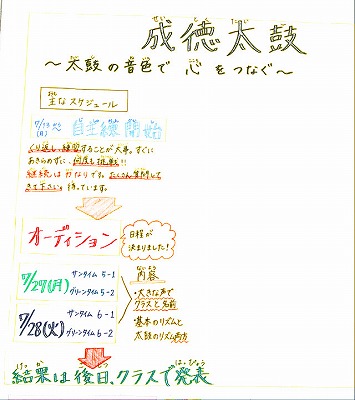 成徳太鼓
～太鼓の音色で 心をつなぐ～
主なスケジュール
7/13から(月) 自主練開始
くり返し練習することが大事。すぐに
あきらめずに、何度も挑戦!!
継続は力なりです。たくさん質問して
きて下さい。待っています。
オーディション
日程が
決まりました!
7/27(月) サンタイム 5-1
グリーンタイム 5-2
7/28(火) サンタイム 6-1
グリーンタイム 6-2
内容
・大きな声で
クラスと名前
・基本のリズムと
太鼓のリズム両方
結果は後日、クラスで発表